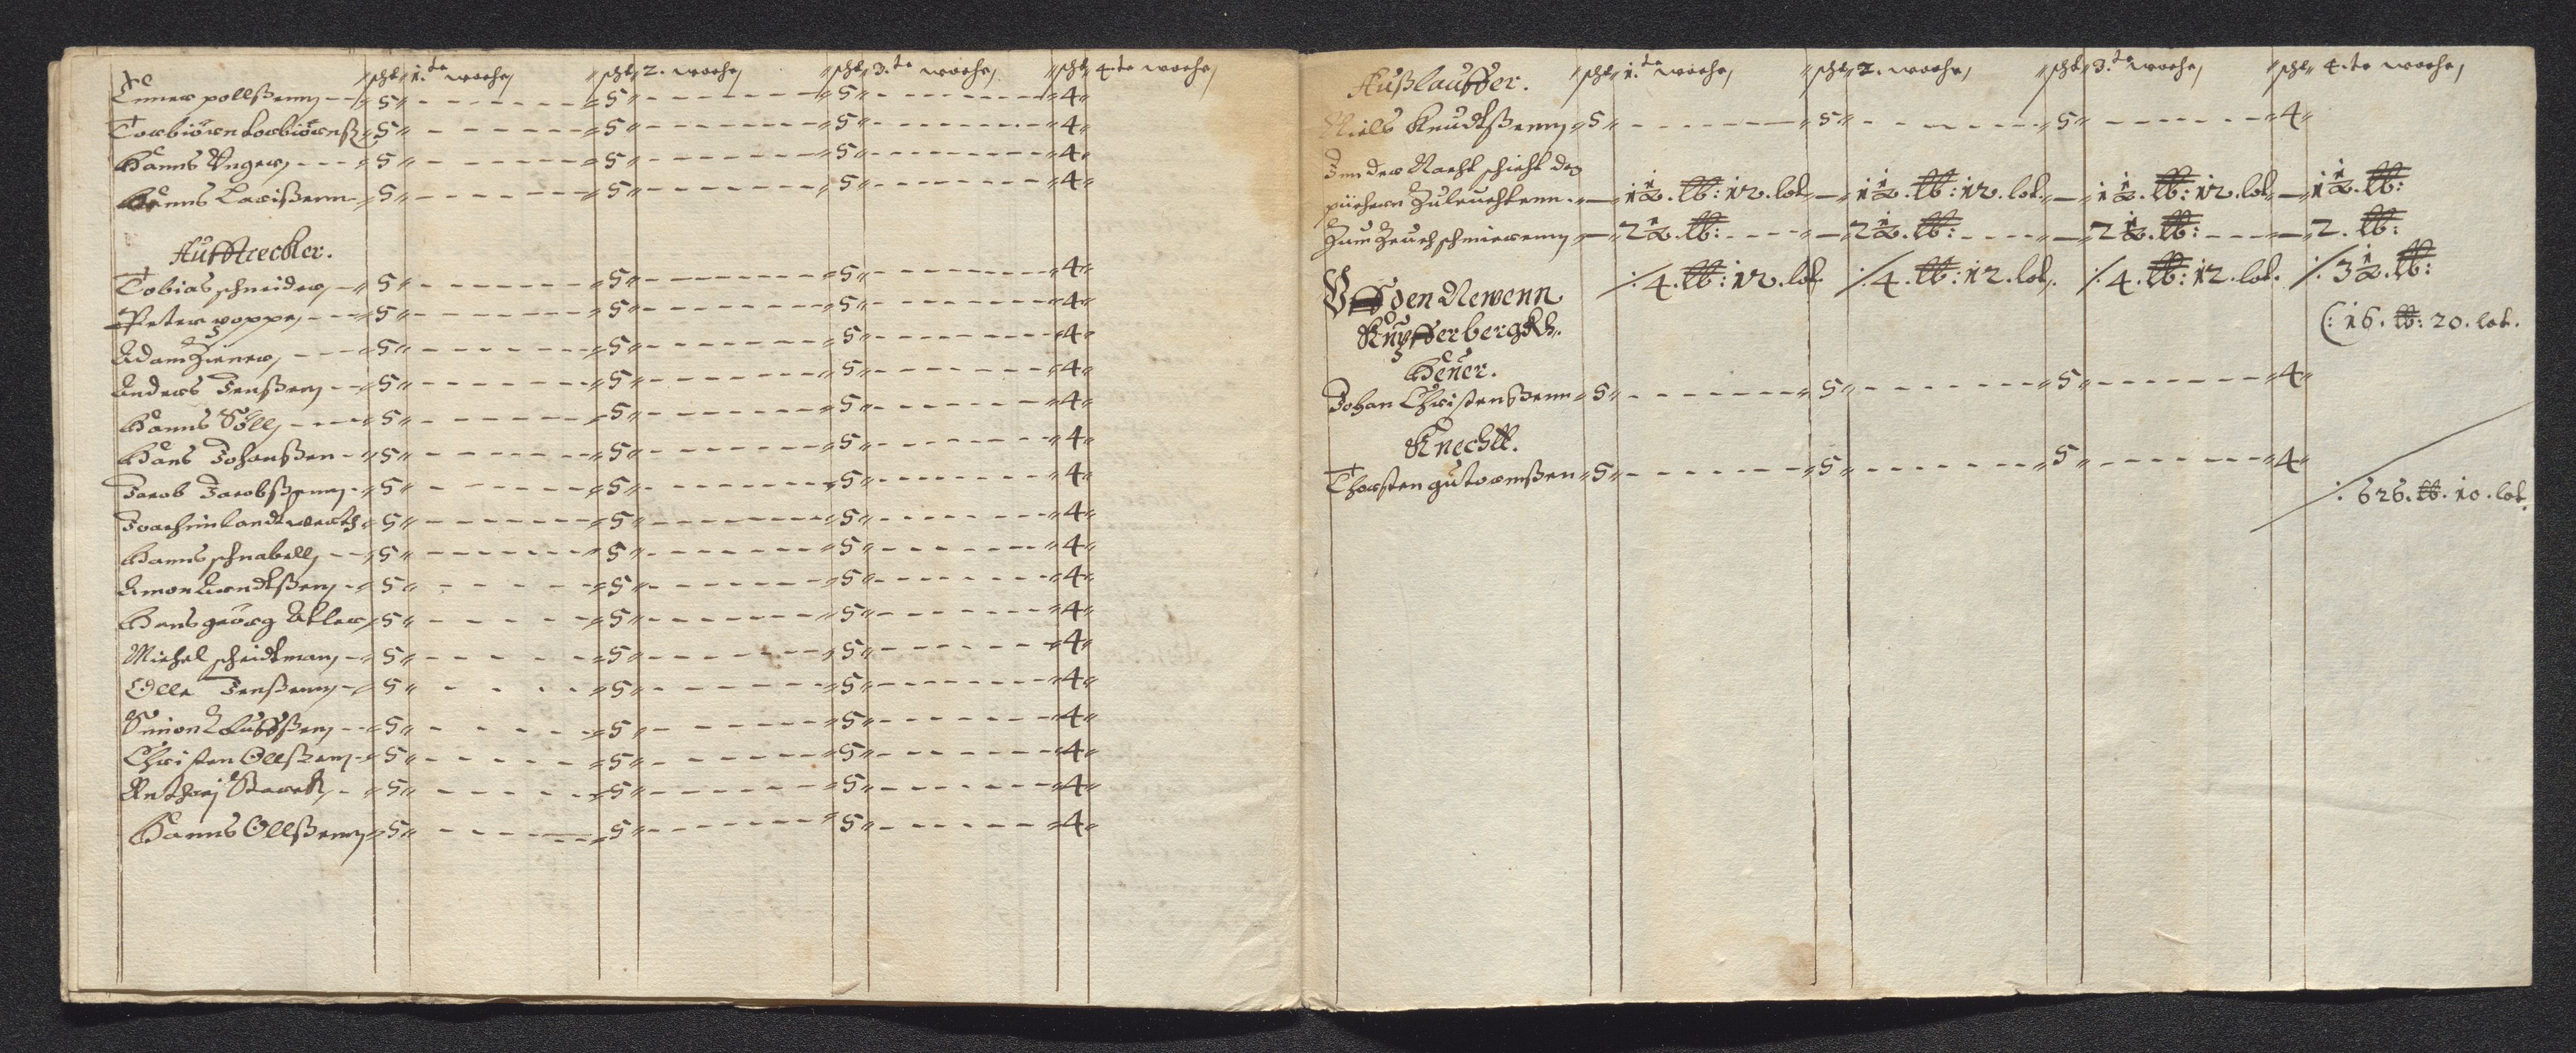 scht 1.te woche scht 2. woche scht 3.te woche scht 4.te woche
Enner pollßenn 5 5 5 4
Torbiörn torbiörnß 5 5 5 4
Hanns Unger 5 5 5 4
Hanns Larißenn 5 5 5 4
Aufftrecker.
Tobias schneider 5 5 5 4
Peter poppe 5 5 5 4
Adam Ziener 5 5 5 4
Anders Jenßenn 5 5 5 4
Hanns Söll 5 5 5 4
Hans Johanßen 5 5 5 4
Jacob Jacobßenn 5 5 5 4
Joachim landtwerth 5 5 5 4
Hanns schnabell 5 5 5 4
Amon Arndtßen 5 5 5 4
Hans georg Adler 5 5 5 4
Michel scheidtman 5 5 5 4
Olle Jenßenn 5 5 5 4
Simon Oluffßen 5 5 5 4
Christen Ollßenn 5 5 5 4
Anthonj Starck 5 5 5 4
Hanns Ollßenn 5 5 5 4
Außlauffer. scht 1.te woche scht 2. woche scht 3.te woche scht 4.te woche
Niels Knudtßenn 5 5 5 4
Inn der Nacht schicht den
püchern Zuleuchtenn 1½. ℔: 12. lot 1½. ℔: 12. lot. 1½. ℔: 12. lot 1½. ℔:
Zum Zeuch schmierenn 2½. ℔: 2½. ℔: 2½. ℔: 2. ℔:
⁒ 4. ℔: 12. lot. ⁒ 4. ℔: 12. lot. ⁒ 4. ℔: 12. lot. ⁒ 3½. ℔:
Uff den Newenn
Kupfferbergk.
(: 16. ℔: 20. lot.
Heüer.
Johan Christenßenn 5 5 5 4
Knecht.
Thorsten gutormßen 5 5 5 4
⁒ 626. ℔. 10. lot.